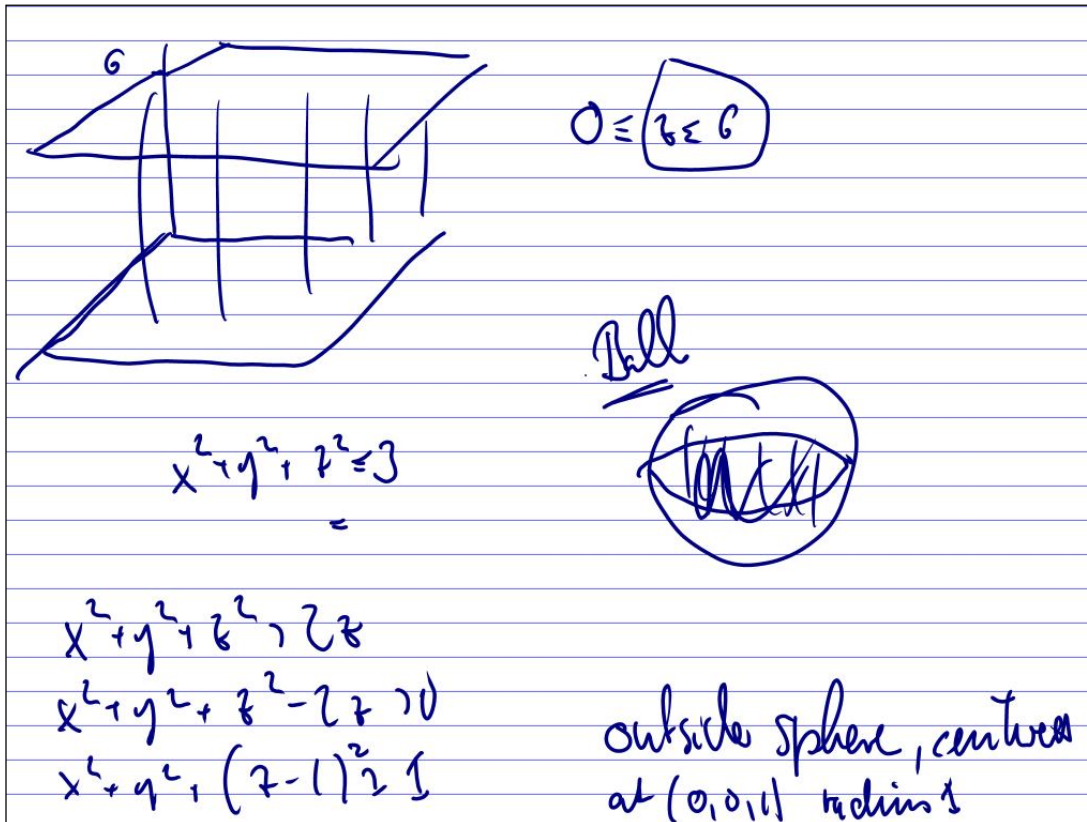 6
0 ≤ z ≤ 6
Ball
x² + y² + z² ≤ 3
=
x² + y² + z² > 2z
x² + y² + z² - 2z > 0
x² + y² + (z-1)² > 1
outside sphere, centered
at (0,0,1) radius 1